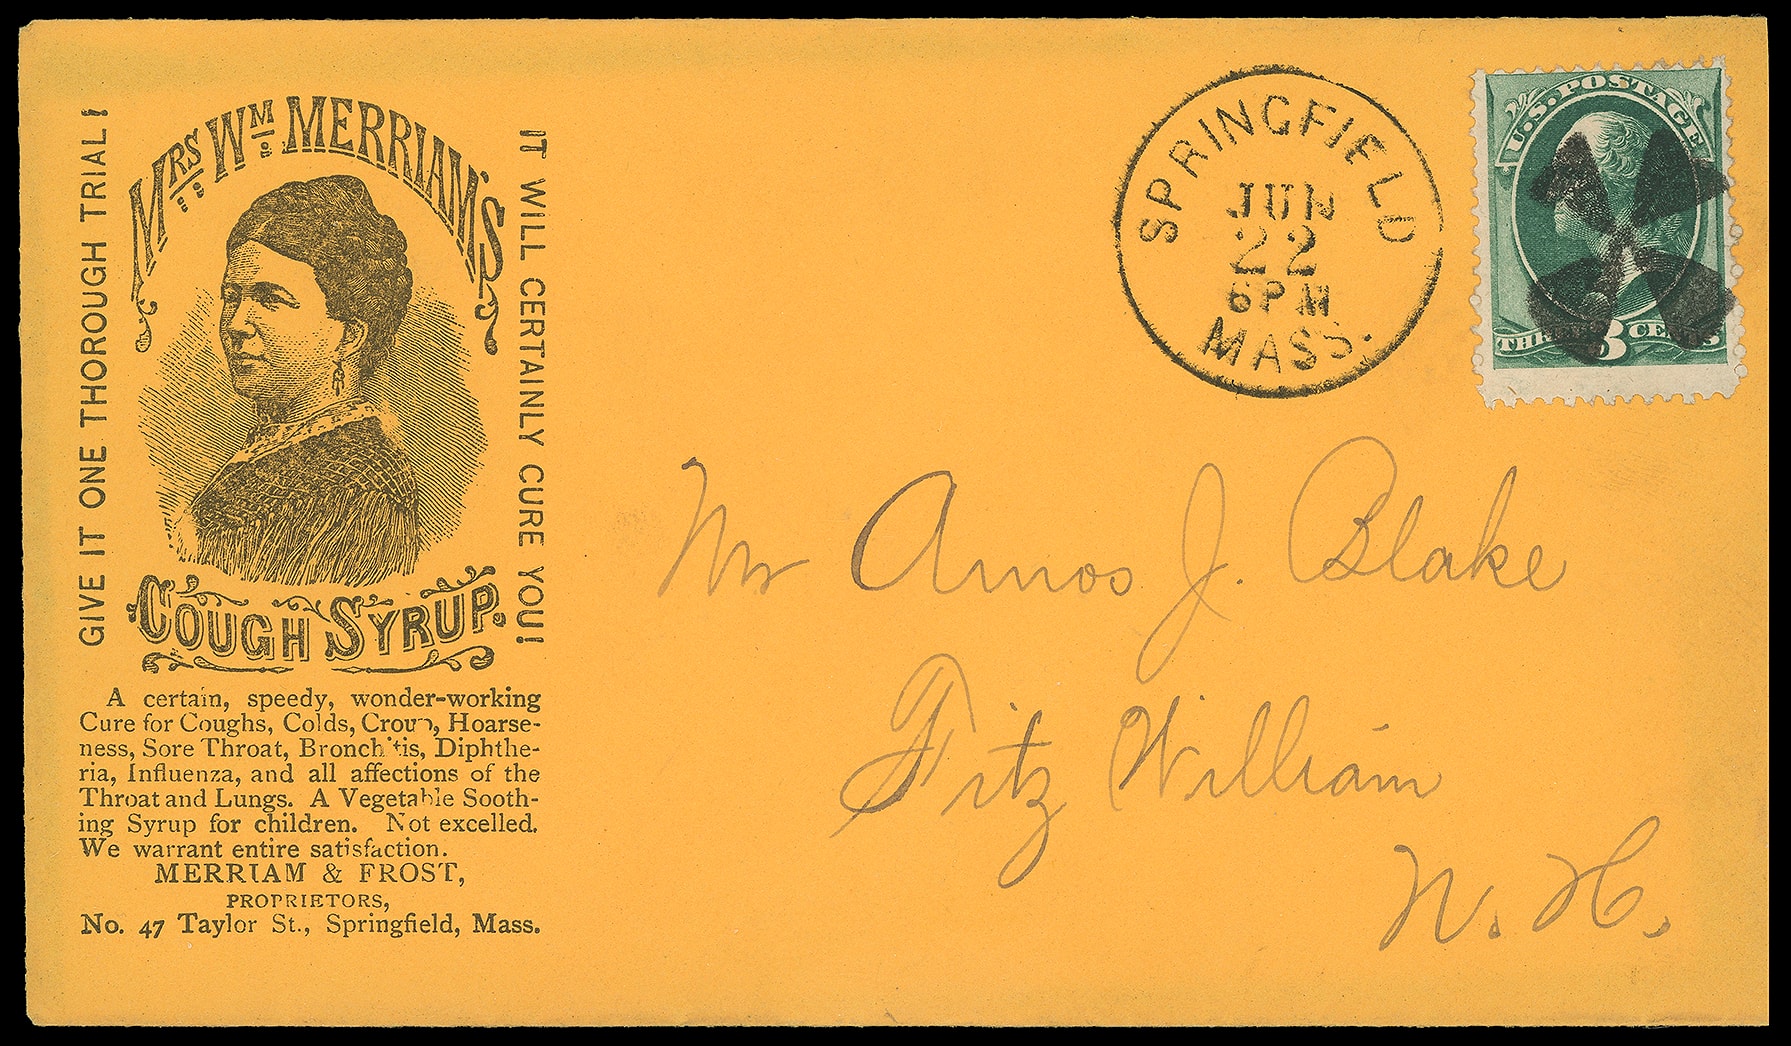 GIVE IT ONE THOROUGH TRIAL!
MRS WM MERRIAM'S
IT WILL CERTAINLY CURE YOU!
COUGH SYRUP.
A certain, speedy, wonder-working
Cure for Coughs, Colds, Croup, Hoarse-
ness, Sore Throat, Bronchitis, Diphthe-
ria, Influenza, and all affections of the
Throat and Lungs. A Vegetable Sooth-
ing Syrup for children. Not excelled.
We warrant entire satisfaction.
MERRIAM & FROST,
PROPRIETORS,
No. 47 Taylor St., Springfield, Mass.
SPRINGFIELD
JUN
22
6 PM
MASS.
U.S. POSTAGE
THREE 3 CENTS
Mr Amos J. Blake
Fitz William
N. H.